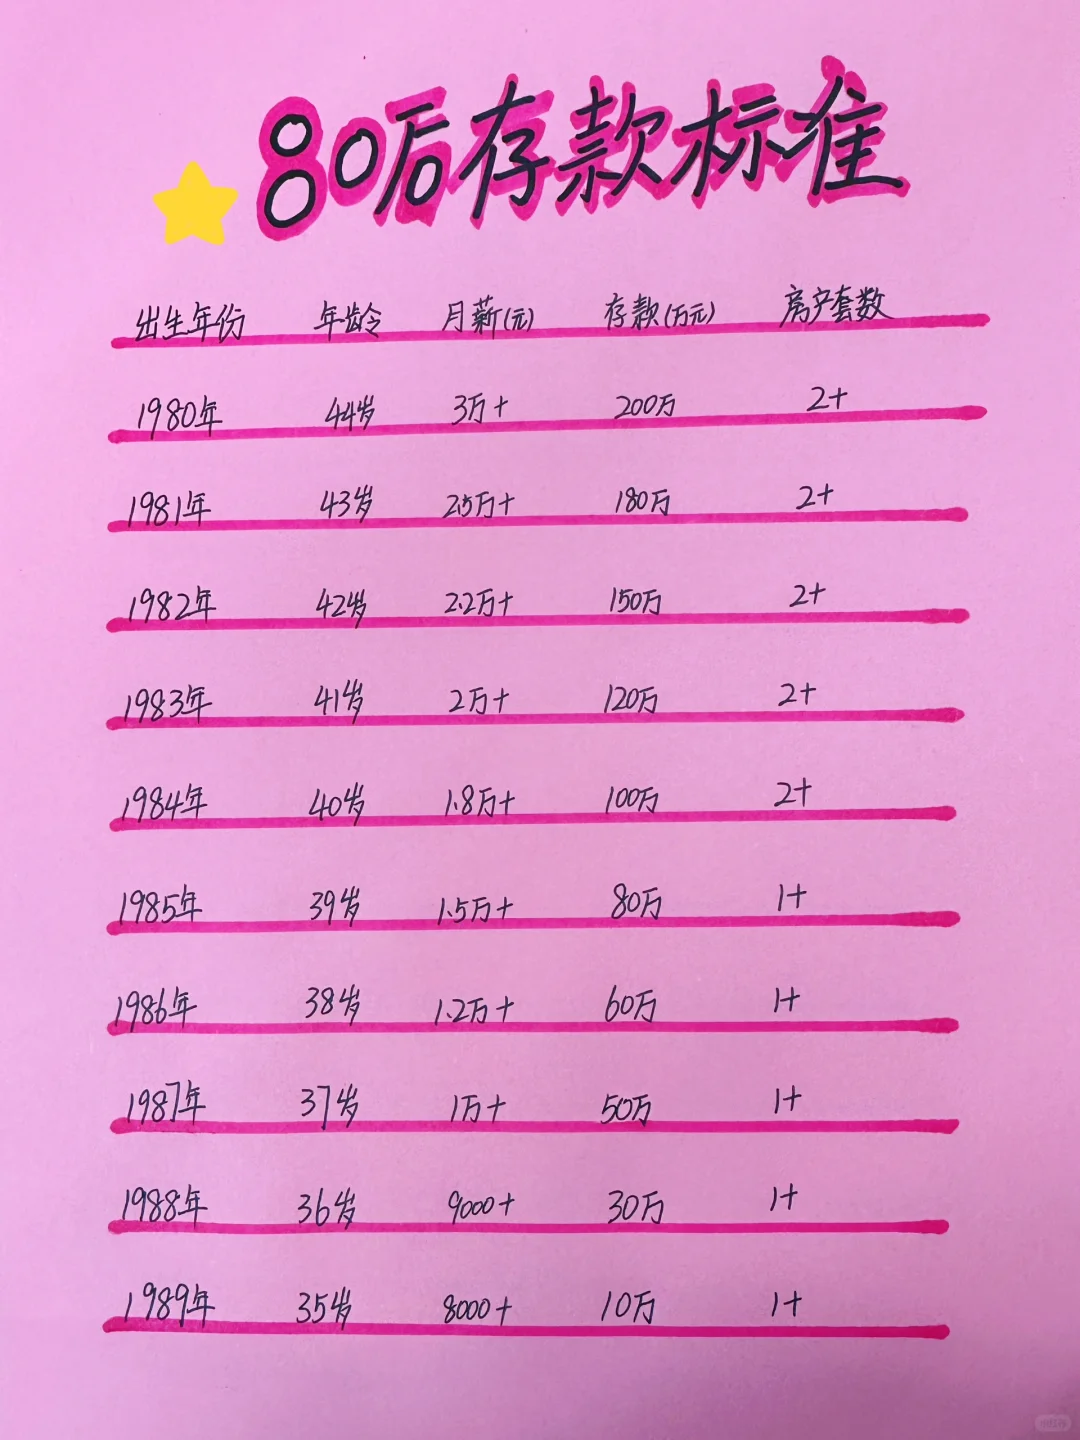 80后存款标准
出生年份 年龄 月薪(元) 存款(万元) 房产套数
1980年 44岁 3万+ 200万 2+
1981年 43岁 2.5万+ 180万 2+
1982年 42岁 2.2万+ 150万 2+
1983年 41岁 2万+ 120万 2+
1984年 40岁 1.8万+ 100万 2+
1985年 39岁 1.5万+ 80万 1+
1986年 38岁 1.2万+ 60万 1+
1987年 37岁 1万+ 50万 1+
1988年 36岁 9000+ 30万 1+
1989年 35岁 8000+ 10万 1+
小红书